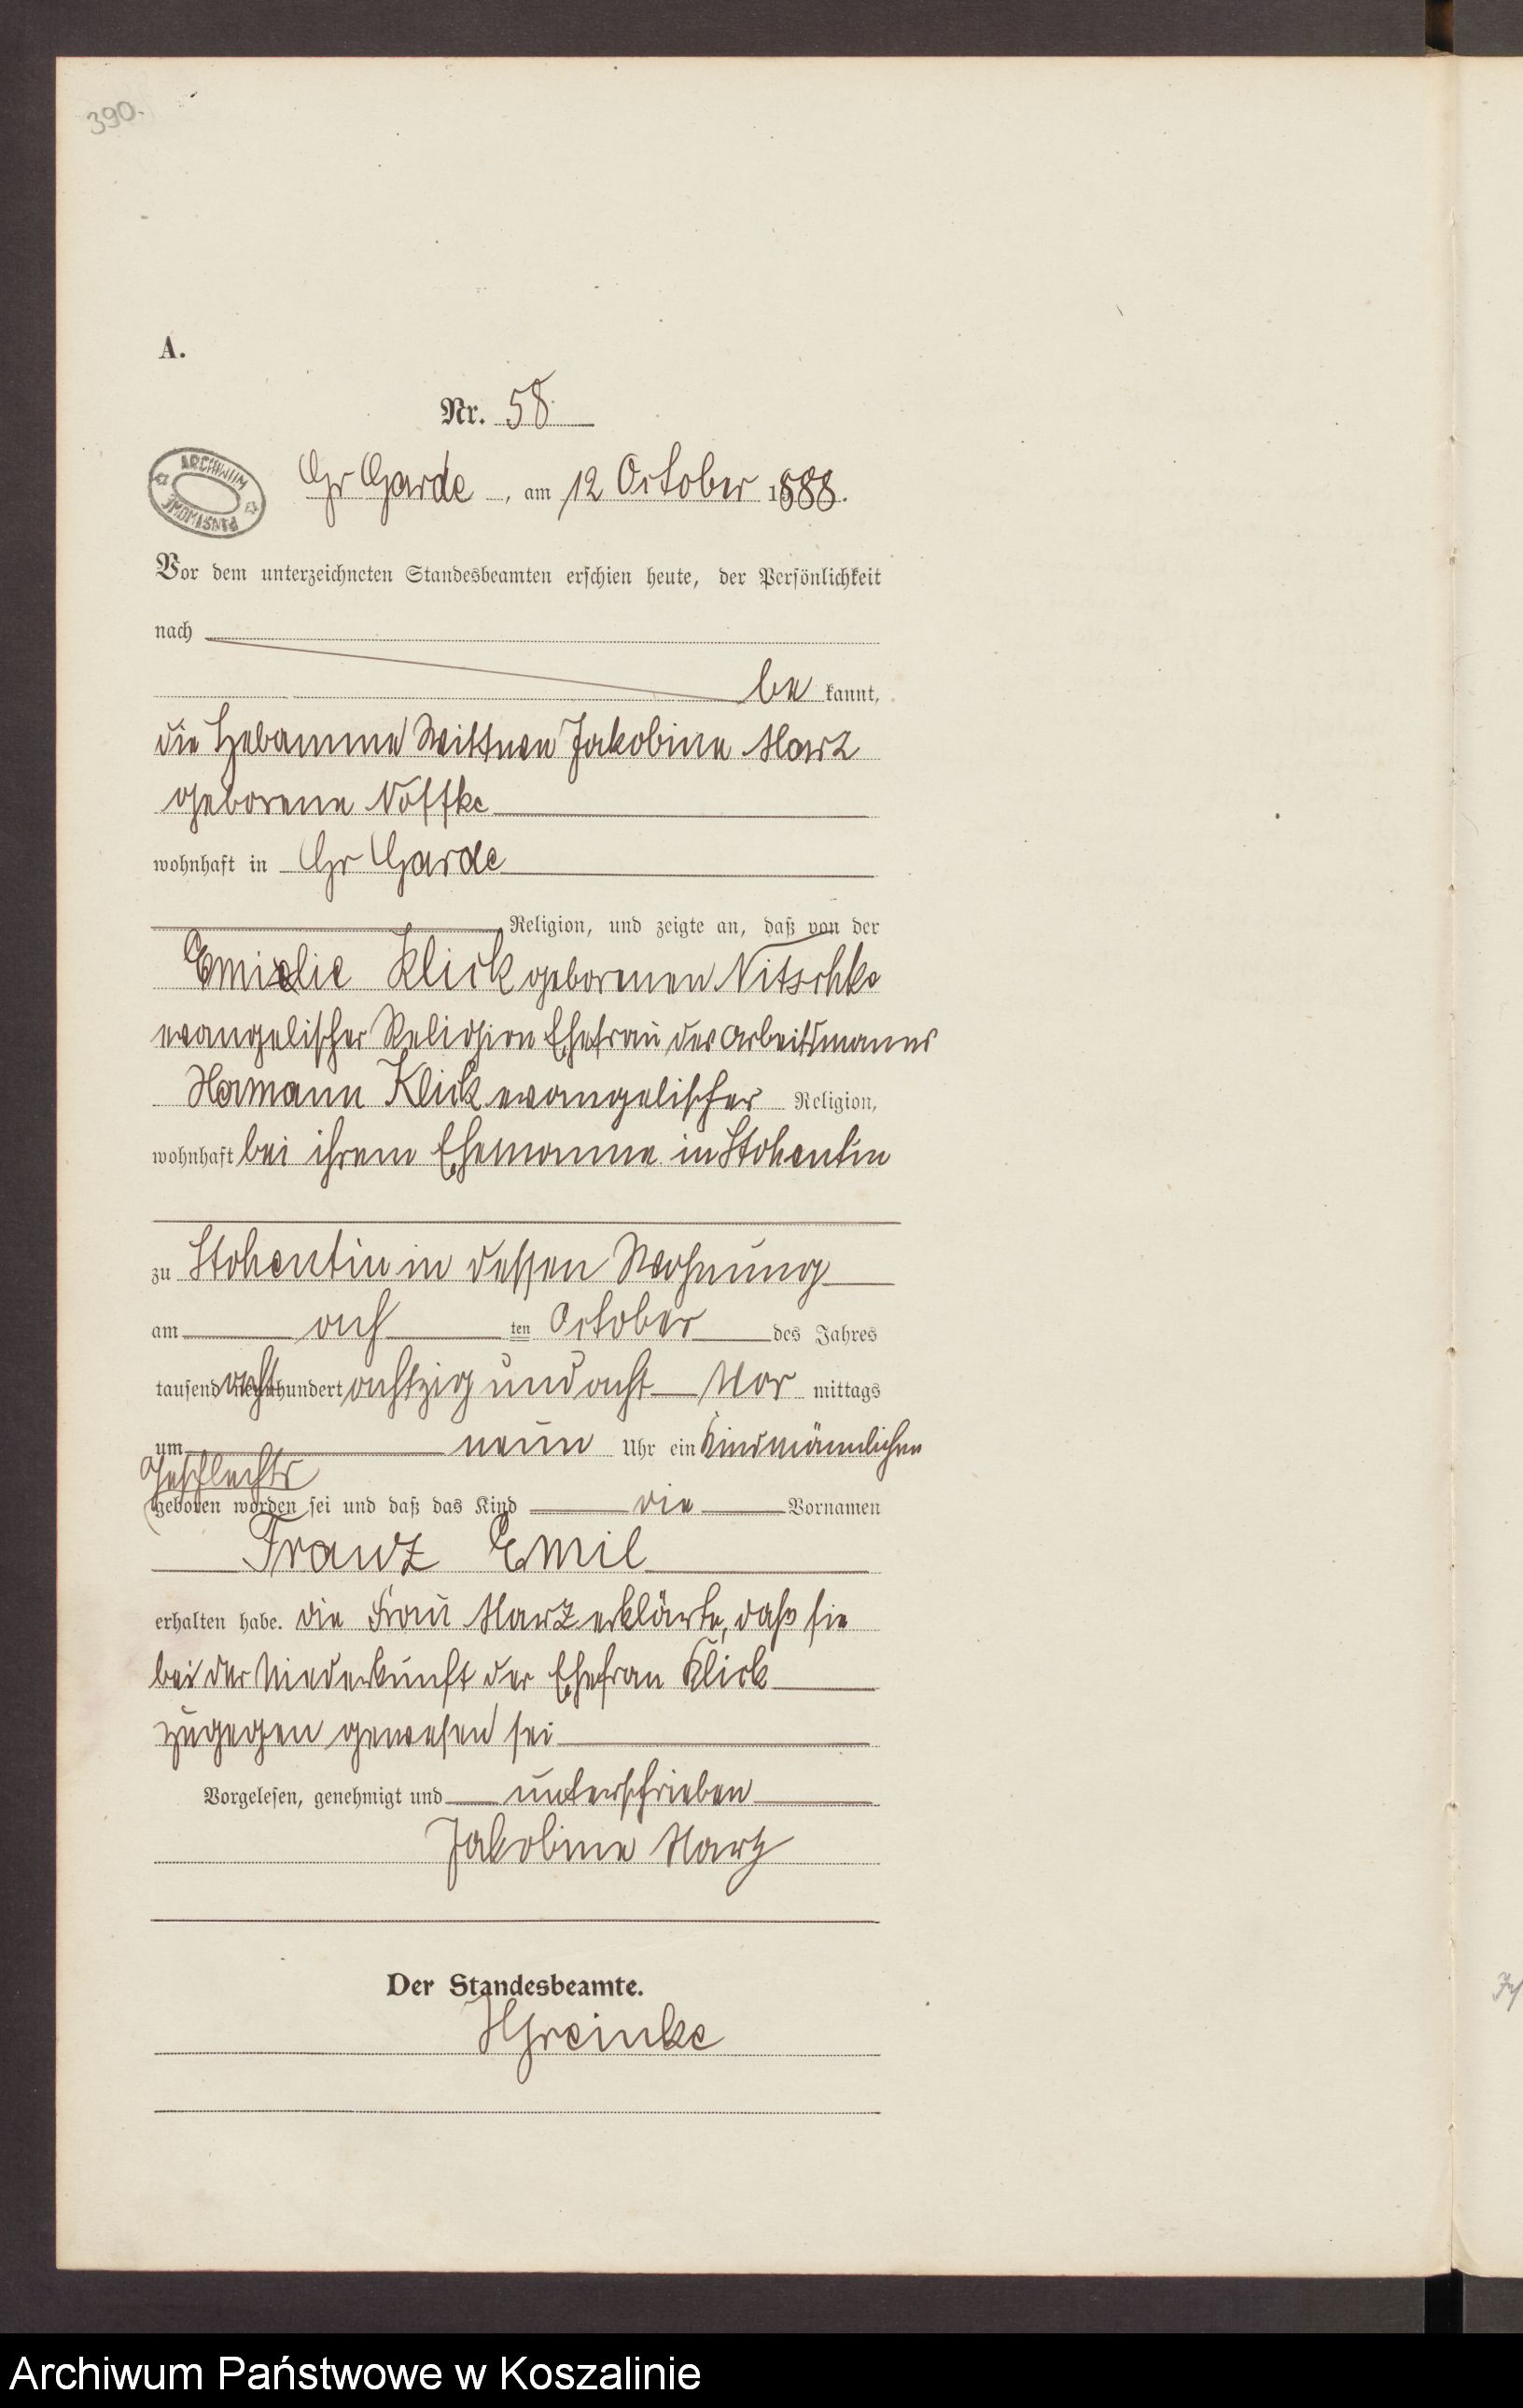 390.
A.
Nr. 58
ARCHIWUM PAŃSTWOWE
Gr Garde, am 12 October 1888.
Vor dem unterzeichneten Standesbeamten erschien heute, der Persönlichkeit
nach
be kannt,
die Hebamme Wittwe Jakobine Marz
geborene Noffke
wohnhaft in Gr Garde
Religion, und zeigte an, daß von der
Emielie Klick geborenen Nitschke
evangelischer Religion Ehefrau des Arbeitsmanns
Hermann Klick evangelischer Religion,
wohnhaft bei ihrem Ehemanne in Stohentin
zu Stohentin in dessen Wohnung
am acht ten October des Jahres
tausend acht hundert achtzig und acht Vor mittags
um neun Uhr ein Kind männlichen
Geschlechts
geboren worden sei und daß das Kind die Vornamen
Franz Emil
erhalten habe. die Frau Marz erklärte, daß sie
bei der Niederkunft der Ehefrau Klick
zugegen gewesen sei
Vorgelesen, genehmigt und unterschrieben
Jakobine Marz
Der Standesbeamte.
HGreinke
Archiwum Państwowe w Koszalinie